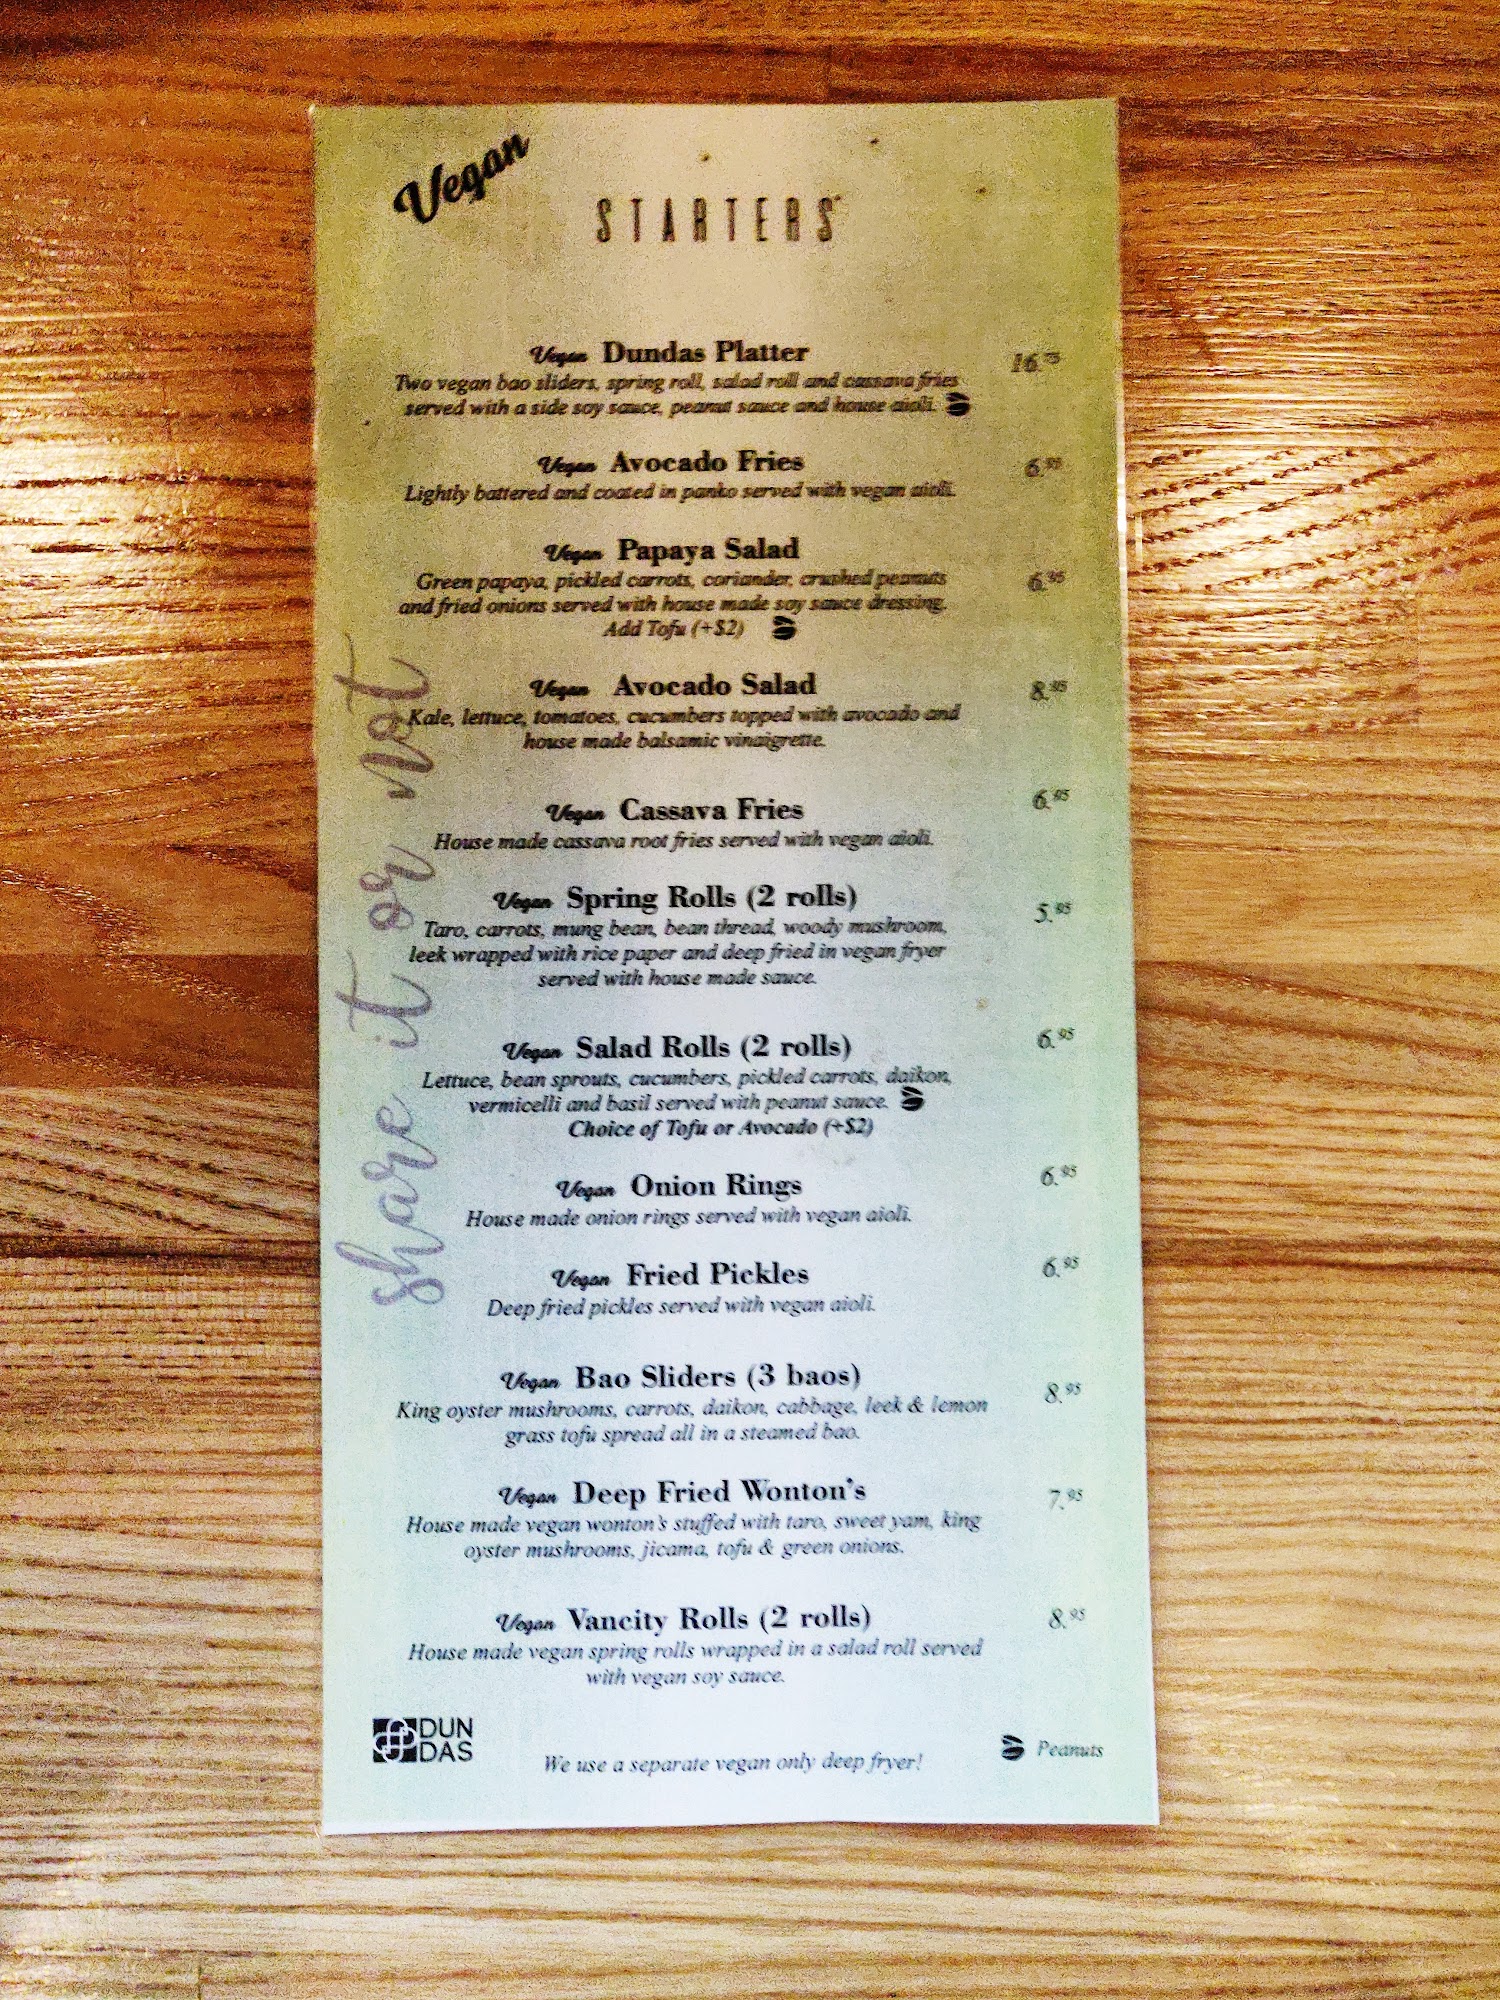 Vegan
STARTERS
Vegan Dundas Platter 16.75
Two vegan bao sliders, spring roll, salad roll and cassava fries
served with a side soy sauce, peanut sauce and house aioli.
Vegan Avocado Fries 6.95
Lightly battered and coated in panko served with vegan aioli.
Vegan Papaya Salad
Green papaya, pickled carrots, coriander, crushed peanuts 6.95
and fried onions served with house made soy sauce dressing.
Add Tofu (+$2)
Vegan Avocado Salad 8.95
Kale, lettuce, tomatoes, cucumbers topped with avocado and
house made balsamic vinaigrette.
Vegan Cassava Fries 6.95
House made cassava root fries served with vegan aioli.
Vegan Spring Rolls (2 rolls) 5.95
Taro, carrots, mung bean, bean thread, woody mushroom,
leek wrapped with rice paper and deep fried in vegan fryer
served with house made sauce.
Vegan Salad Rolls (2 rolls) 6.95
Lettuce, bean sprouts, cucumbers, pickled carrots, daikon,
vermicelli and basil served with peanut sauce.
Choice of Tofu or Avocado (+$2)
Vegan Onion Rings 6.95
House made onion rings served with vegan aioli.
Vegan Fried Pickles 6.95
Deep fried pickles served with vegan aioli.
Vegan Bao Sliders (3 baos) 8.95
King oyster mushrooms, carrots, daikon, cabbage, leek & lemon
grass tofu spread all in a steamed bao.
Vegan Deep Fried Wonton's 7.95
House made vegan wonton's stuffed with taro, sweet yam, king
oyster mushrooms, jicama, tofu & green onions.
Vegan Vancity Rolls (2 rolls) 8.95
House made vegan spring rolls wrapped in a salad roll served
with vegan soy sauce.
share it or not
DUN
DAS
We use a separate vegan only deep fryer!
Peanuts